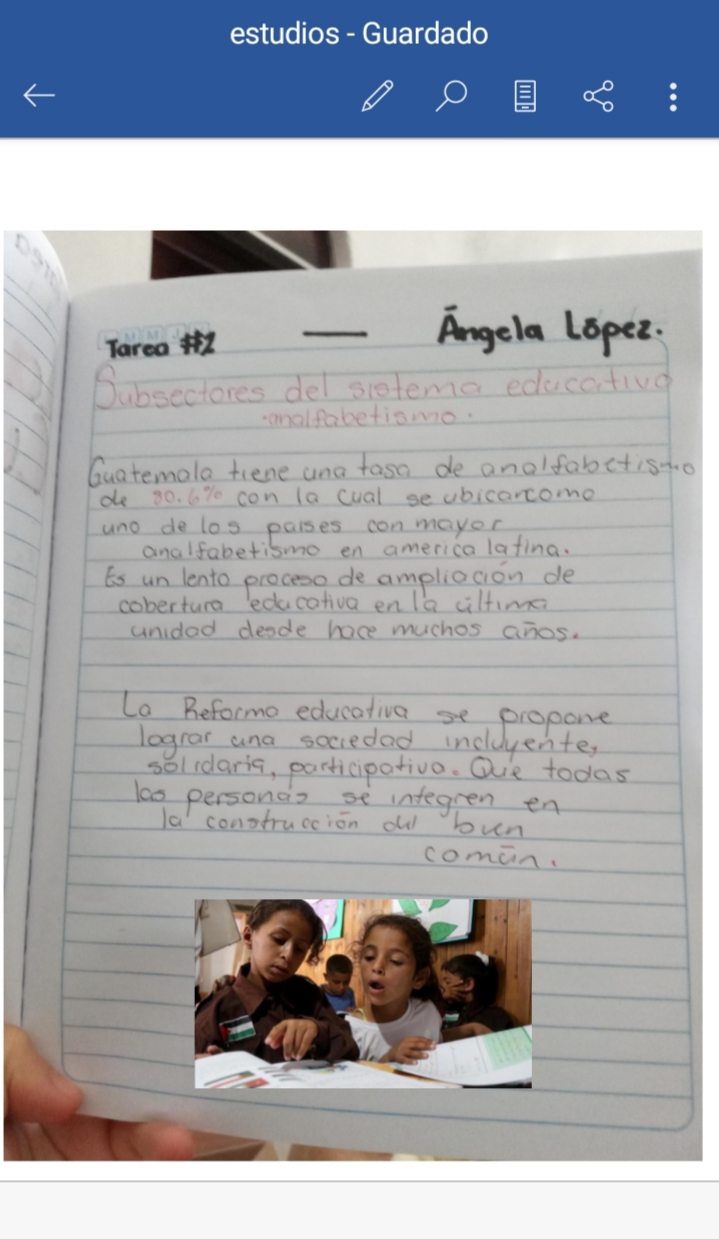 estudios - Guardado
Tarea #2
Āngela Lōpez.
Subsectores del sistema educativo
·analfabetismo.
Guatemala tiene una tasa de analfabetismo
de 30.6% con la cual se ubicarcomo
uno de los paises con mayor
analfabetismo en america latina.
Es un lento proceso de ampliación de
cobertura educativa en la última
unidad desde hace muchos años.
La Reforma educativa se propone
lograr una sociedad incluyente,
solidaria, participativa. Que todas
las personas se integren en
la construcciōn del buen
comūn.